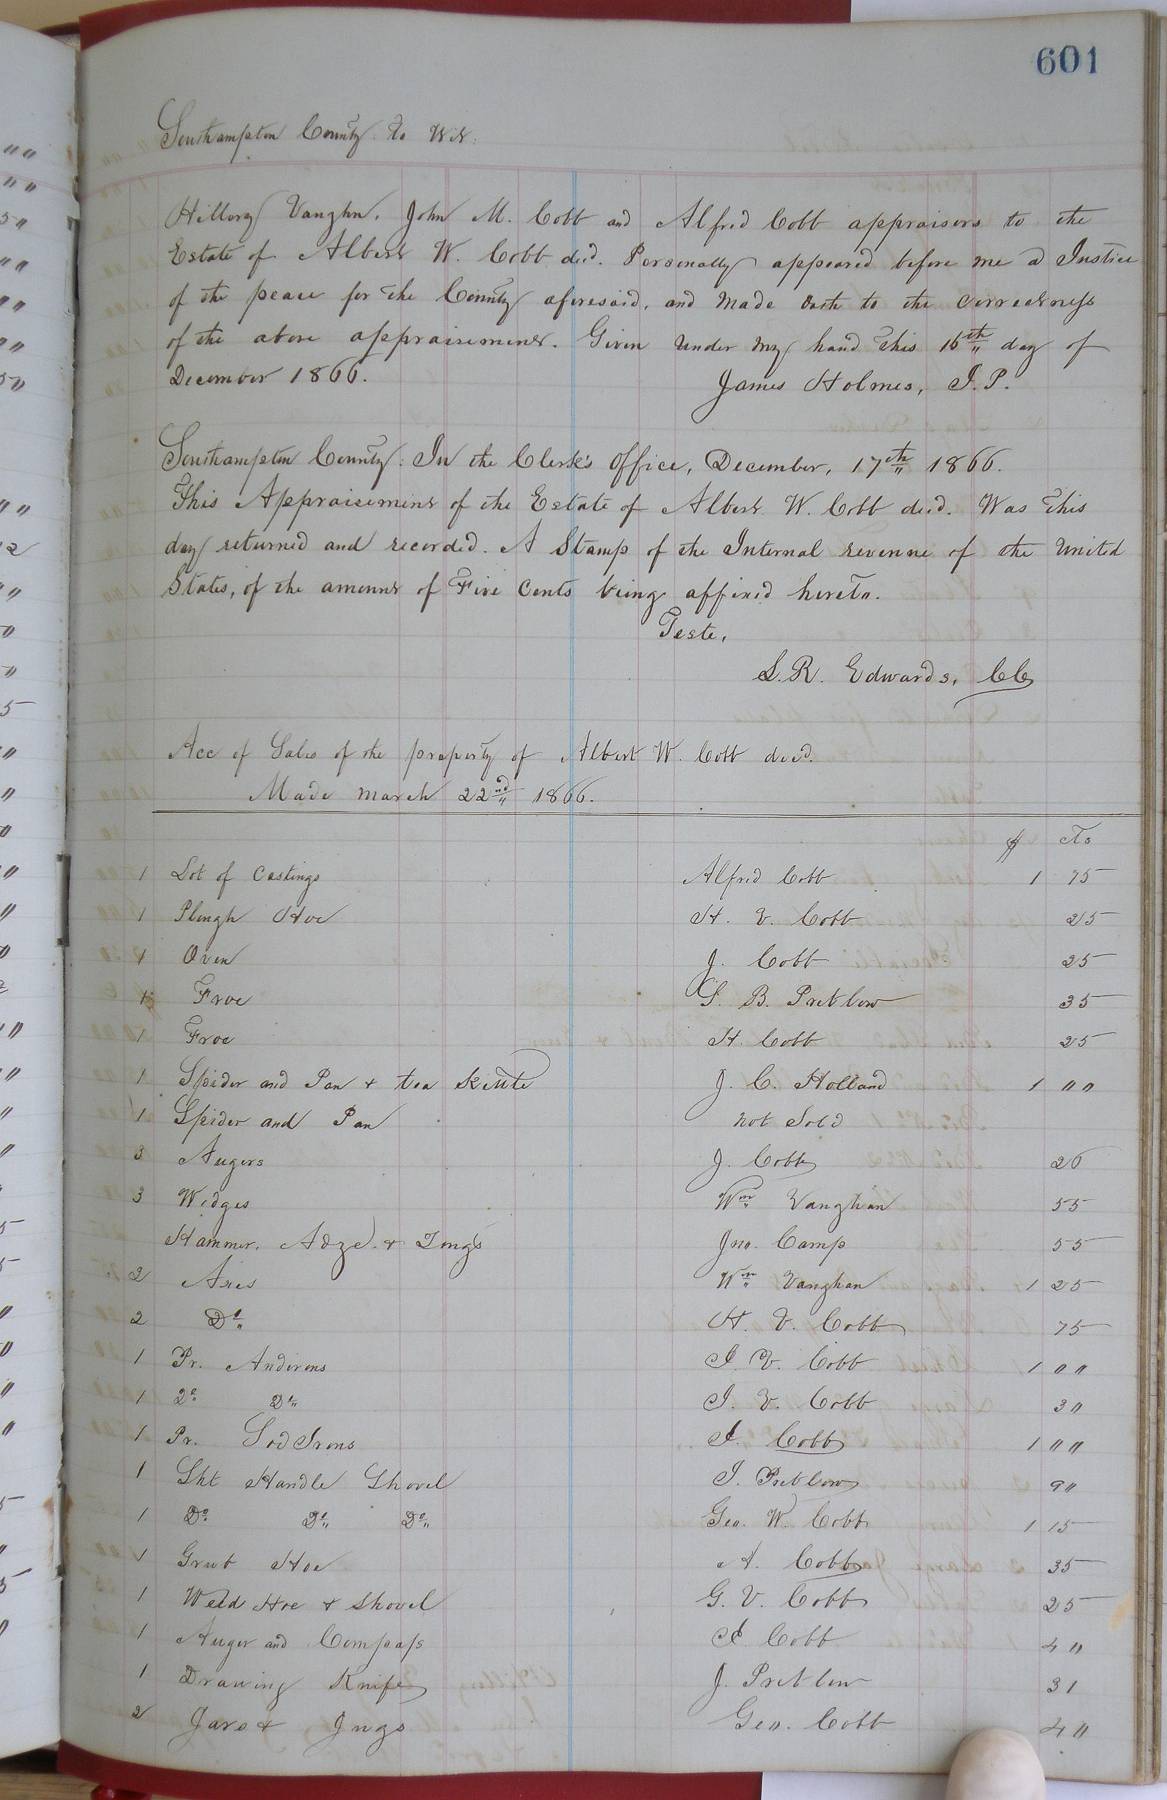 601
Southampton County to Wit.
Hillory Vaughn, John M. Cobb and Alfred Cobb appraisors to the
Estate of Albert W. Cobb decd. Personally appeared before me a Justice
of the peace for the County aforesaid, and made oath to the correctness
of the above appraisement. Given under my hand this 16th day of
December 1866. James Holmes, J.P.
Southampton County: In the Clerk's Office, December, 17th 1866.
This Appraisement of the Estate of Albert W. Cobb decd. Was this
day returned and recorded. A Stamp of the Internal revenue of the United
States, of the amount of Five Cents being affixed hereto.
Teste,
L. R. Edwards, CC
Acc of Sales of the property of Albert W. Cobb decd.
Made march 22nd 1866.
$ Cts
1 Lot of Castings Alfred Cobb 1 75
1 Plough Hoe H. V. Cobb 25
1 Oven J. Cobb 25
1 Froe S. B. Pretlow 35
1 Froe H. Cobb 25
1 Spider and Pan & tea Kettle J. C. Holland 1 ""
1 Spider and Pan not Sold
3 Augers J. Cobb 26
3 Wedges Wm Vaughan 55
Hammer, Adze. & Tongs Jno. Camp 55
2 Axes Wm Vaughan 1 25
2 Do H. V. Cobb 75
1 Pr. Andirons J. V. Cobb 1 ""
1 Do Do J. V. Cobb 3"
1 Pr. Sod Irons J. Cobb 1 ""
1 Sht Handle Shovel J. Pretlow 9"
1 Do Do Do Geo. W. Cobb 1 15
1 Grub Hoe A. Cobb 35
1 Weed Hoe & Shovel G. V. Cobb 25
1 Auger and Compass J. Cobb 4"
1 Drawing Knife J. Pretlow 31
2 Jars & Jugs Geo. Cobb 4"